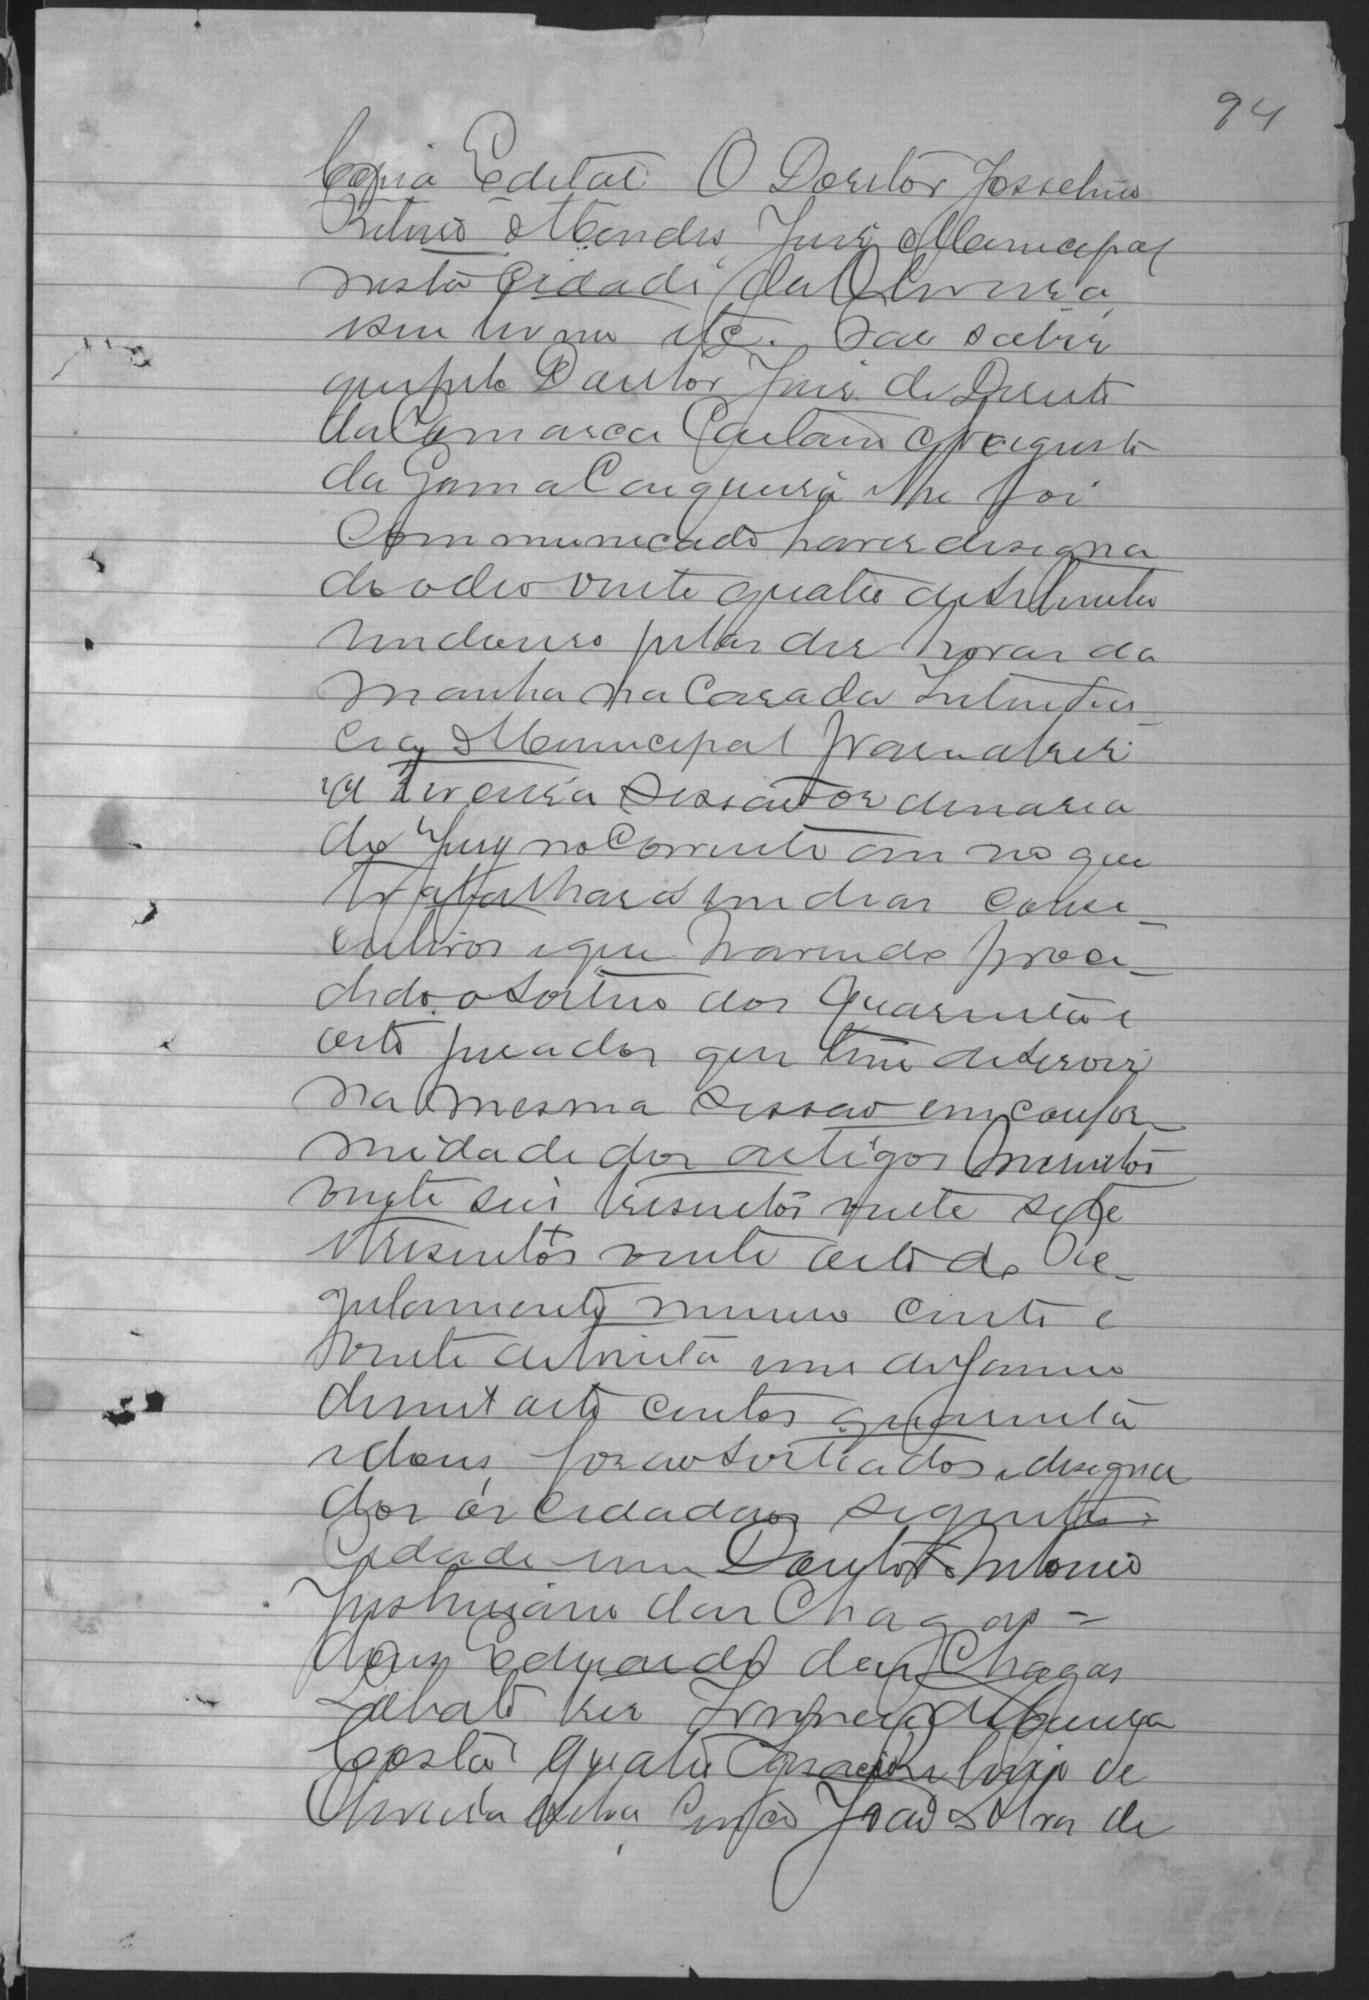 94
Copia Edital O Doutor Josselino
Ribeiro Mendes Juiz Municipal
nesta Cidade da Oliveira
e seu termo etc. Faz saber
que pelo Doutor Juiz de Direito
da Comarca Caetano Augusto
da Gama Cerqueira lhe foi
Communicado haver designa
do o dia vinte quatro de Setembro
vindouro pelas dez horas da
manha na Casa da Intenden_
cia Municipal para abrir
a terceira Sessão ordinaria
do Jury no Corrente anno que
trabalhará em dias conse_
cutivos e que havendo proce_
dido o sorteio dos quarenta e
oito jurados que tem de servir
na mesma Sessão em confor_
midade dos artigos trezentos
vinte seis trezentos vinte sete
e trezentos vinte oito do Re_
gulamento numero cento e
vinte de trinta um de Janeiro
de mil oito centos quarenta
e dous, forão sorteados e designa
dos os cidadãos seguintes:
Cidade um Doutor Antonio
Justiniano das Chagas =
dous Eduardo das Chagas
Lobato tres de
Costa quatro de
Oliveira Silva Cinco João de